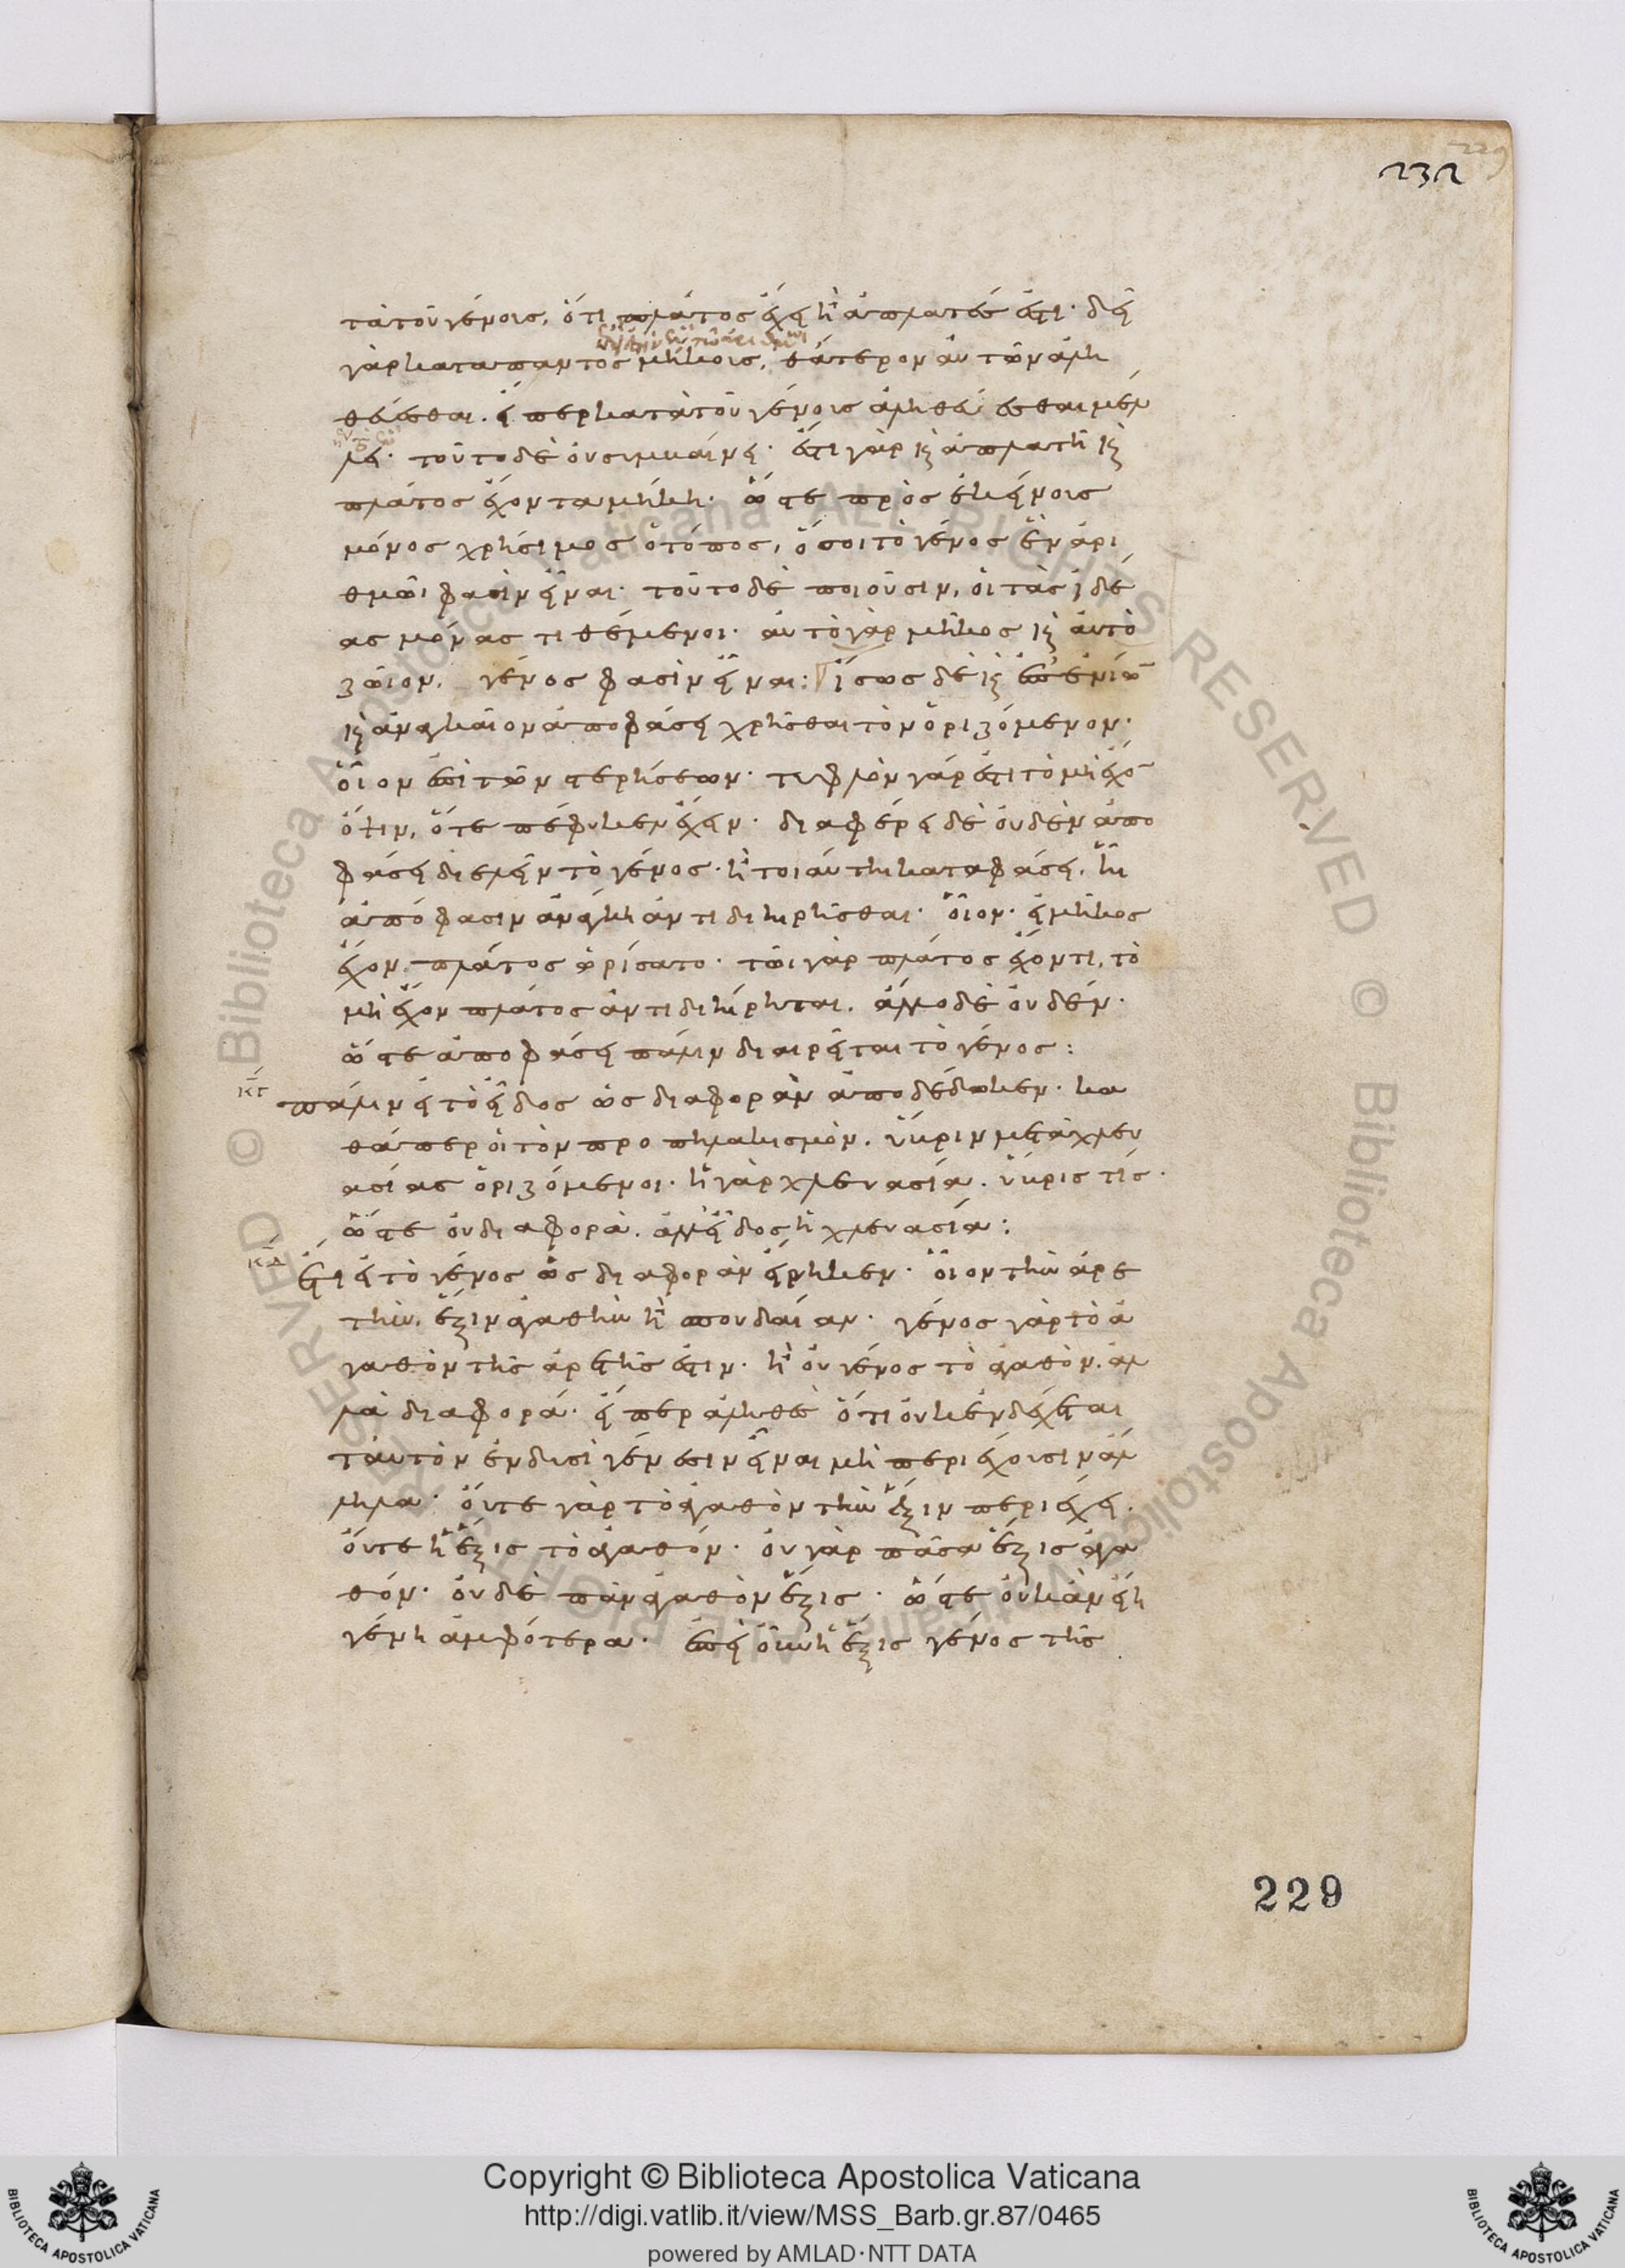 232
τὰ τοῦ γένους, ὅτι πλάτος ἔχει ἢ ἀπλατές ἐστι· δεῖ
γὰρ κατὰ παντὸς μήκους, θάτερον αὐτῶν ἀλη
θεύεσθαι. εἴπερ κατὰ τοῦ γένους ἀληθεύεσθαι μέλ
λει· τοῦτο δὲ οὐ συμβαίνει· ἔστι γὰρ καὶ ἀπλατῆ καὶ
πλάτος ἔχοντα μήκη· ὥστε πρὸς ἐκείνους
μόνος χρήσιμος ὁ τόπος, ὅσοι τὸ γένος ἓν ἀρι
θμῶι φασὶν εἶναι· τοῦτο δὲ ποιοῦσιν, οἱ τὰς ἰδέ
ας μόνας τιθέμενοι· αὐτὸ γὰρ μῆκος καὶ αὐτὸ
ζῶιον, γένος φασὶν εἶναι: ἴσως δὲ καὶ ἐπ' ἐνίων
καὶ ἀναγκαῖον ἀποφάσει χρῆσθαι τὸν ὁριζόμενον·
οἷον ἐπὶ τῶν στερήσεων· τυφλὸν γάρ ἐστι τὸ μὴ ἔχον
ὄψιν, ὅτε πέφυκεν ἔχειν· διαφέρει δὲ οὐδὲν ἀπο
φάσει διελεῖν τὸ γένος· ἢ τοιαύτη καταφάσει, ἧι
ἀπόφασιν ἀνάγκη ἀντιδιηρῆσθαι· οἷον· εἰ μῆκος
ἔχον πλάτος ὡρίσατο· τῶι γὰρ πλάτος ἔχοντι, τὸ
μὴ ἔχον πλάτος ἀντιδιήρηται, ἄλλο δὲ οὐδέν·
ὥστε ἀποφάσει πάλιν διαιρεῖται τὸ γένος:
κγ πάλιν εἰ τὸ εἶδος ὡς διαφορὰν ἀποδέδωκεν· κα
θάπερ οἱ τὸν προπηλακισμὸν, ὕβριν μετὰ χλευ
ασίας ὁριζόμενοι· ἡ γὰρ χλευασία, ὕβρις τις·
ὥστε οὐ διαφορὰ, ἀλλ' εἶδος ἡ χλευασία:
κδ ἔτι εἰ τὸ γένος ὡς διαφορὰν εἴρηκεν· οἷον τὴν ἀρε
τὴν, ἕξιν ἀγαθὴν ἢ σπουδαίαν· γένος γὰρ τὸ ἀ
γαθὸν τῆς ἀρετῆς ἐστιν· ἢ οὐ γένος τὸ ἀγαθὸν, ἀλ
λὰ διαφορά· εἴπερ ἀληθὲς ὅτι οὐκ ἐνδέχεται
ταὐτὸν ἐν δυσὶ γένεσιν εἶναι μὴ περιέχουσιν ἄλ
ληλα· οὔτε γὰρ τὸ ἀγαθὸν τὴν ἕξιν περιέχει.
οὔτε ἡ ἕξις τὸ ἀγαθόν· οὐ γὰρ πᾶσα ἕξις ἀγα
θόν· οὐδὲ πᾶν ἀγαθὸν ἕξις· ὥστε οὐκ ἂν εἴη
γένη ἀμφότερα· ἐπεὶ οὖν ἡ ἕξις γένος τῆς
229
Copyright © Biblioteca Apostolica Vaticana
http://digi.vatlib.it/view/MSS_Barb.gr.87/0465
powered by AMLAD·NTT DATA